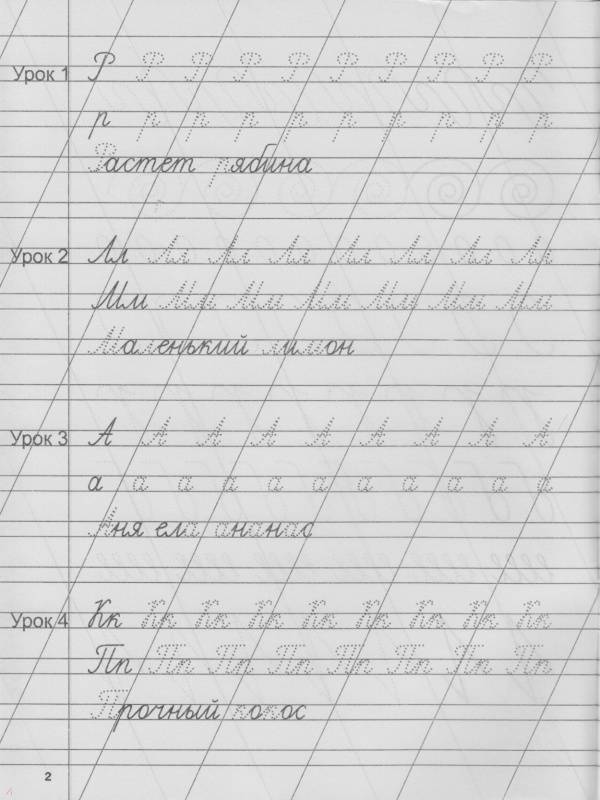 Урок 1 Р Р Р Р Р Р Р Р Р Р
р р р р р р р р р р
Растет рябина
Урок 2 Лл Лл Лл Лл Лл Лл Лл Лл
Мм Мм Мм Мм Мм Мм Мм
Маленький лимон
Урок 3 А А А А А А А А А
а а а а а а а а а а а
Аня ела ананас
Урок 4 Кк Кк Кк Кк Кк Кк Кк Кк Кк
Пп Пп Пп Пп Пп Пп Пп Пп
Прочный кокос
2